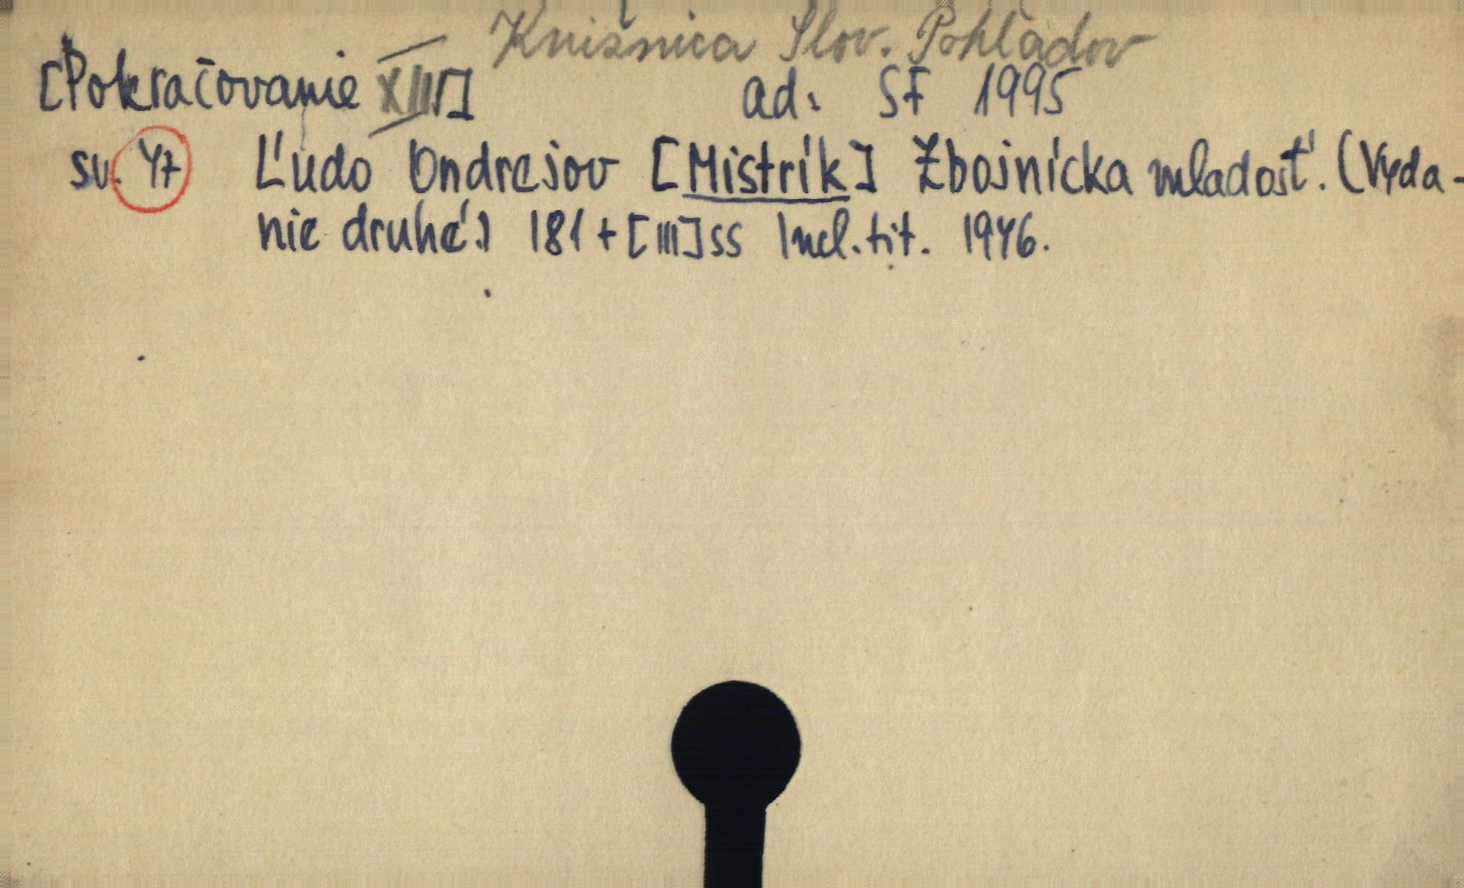 Knižnica Slov. Pohľadov
[Pokračovanie XIII] ad: SF 1995
sv. 47 Ľudo Ondrejov [Mistrík] Zbojnícka mladosť. (Vyda-
nie druhé.) 181+[III]ss Incl.tit. 1946.